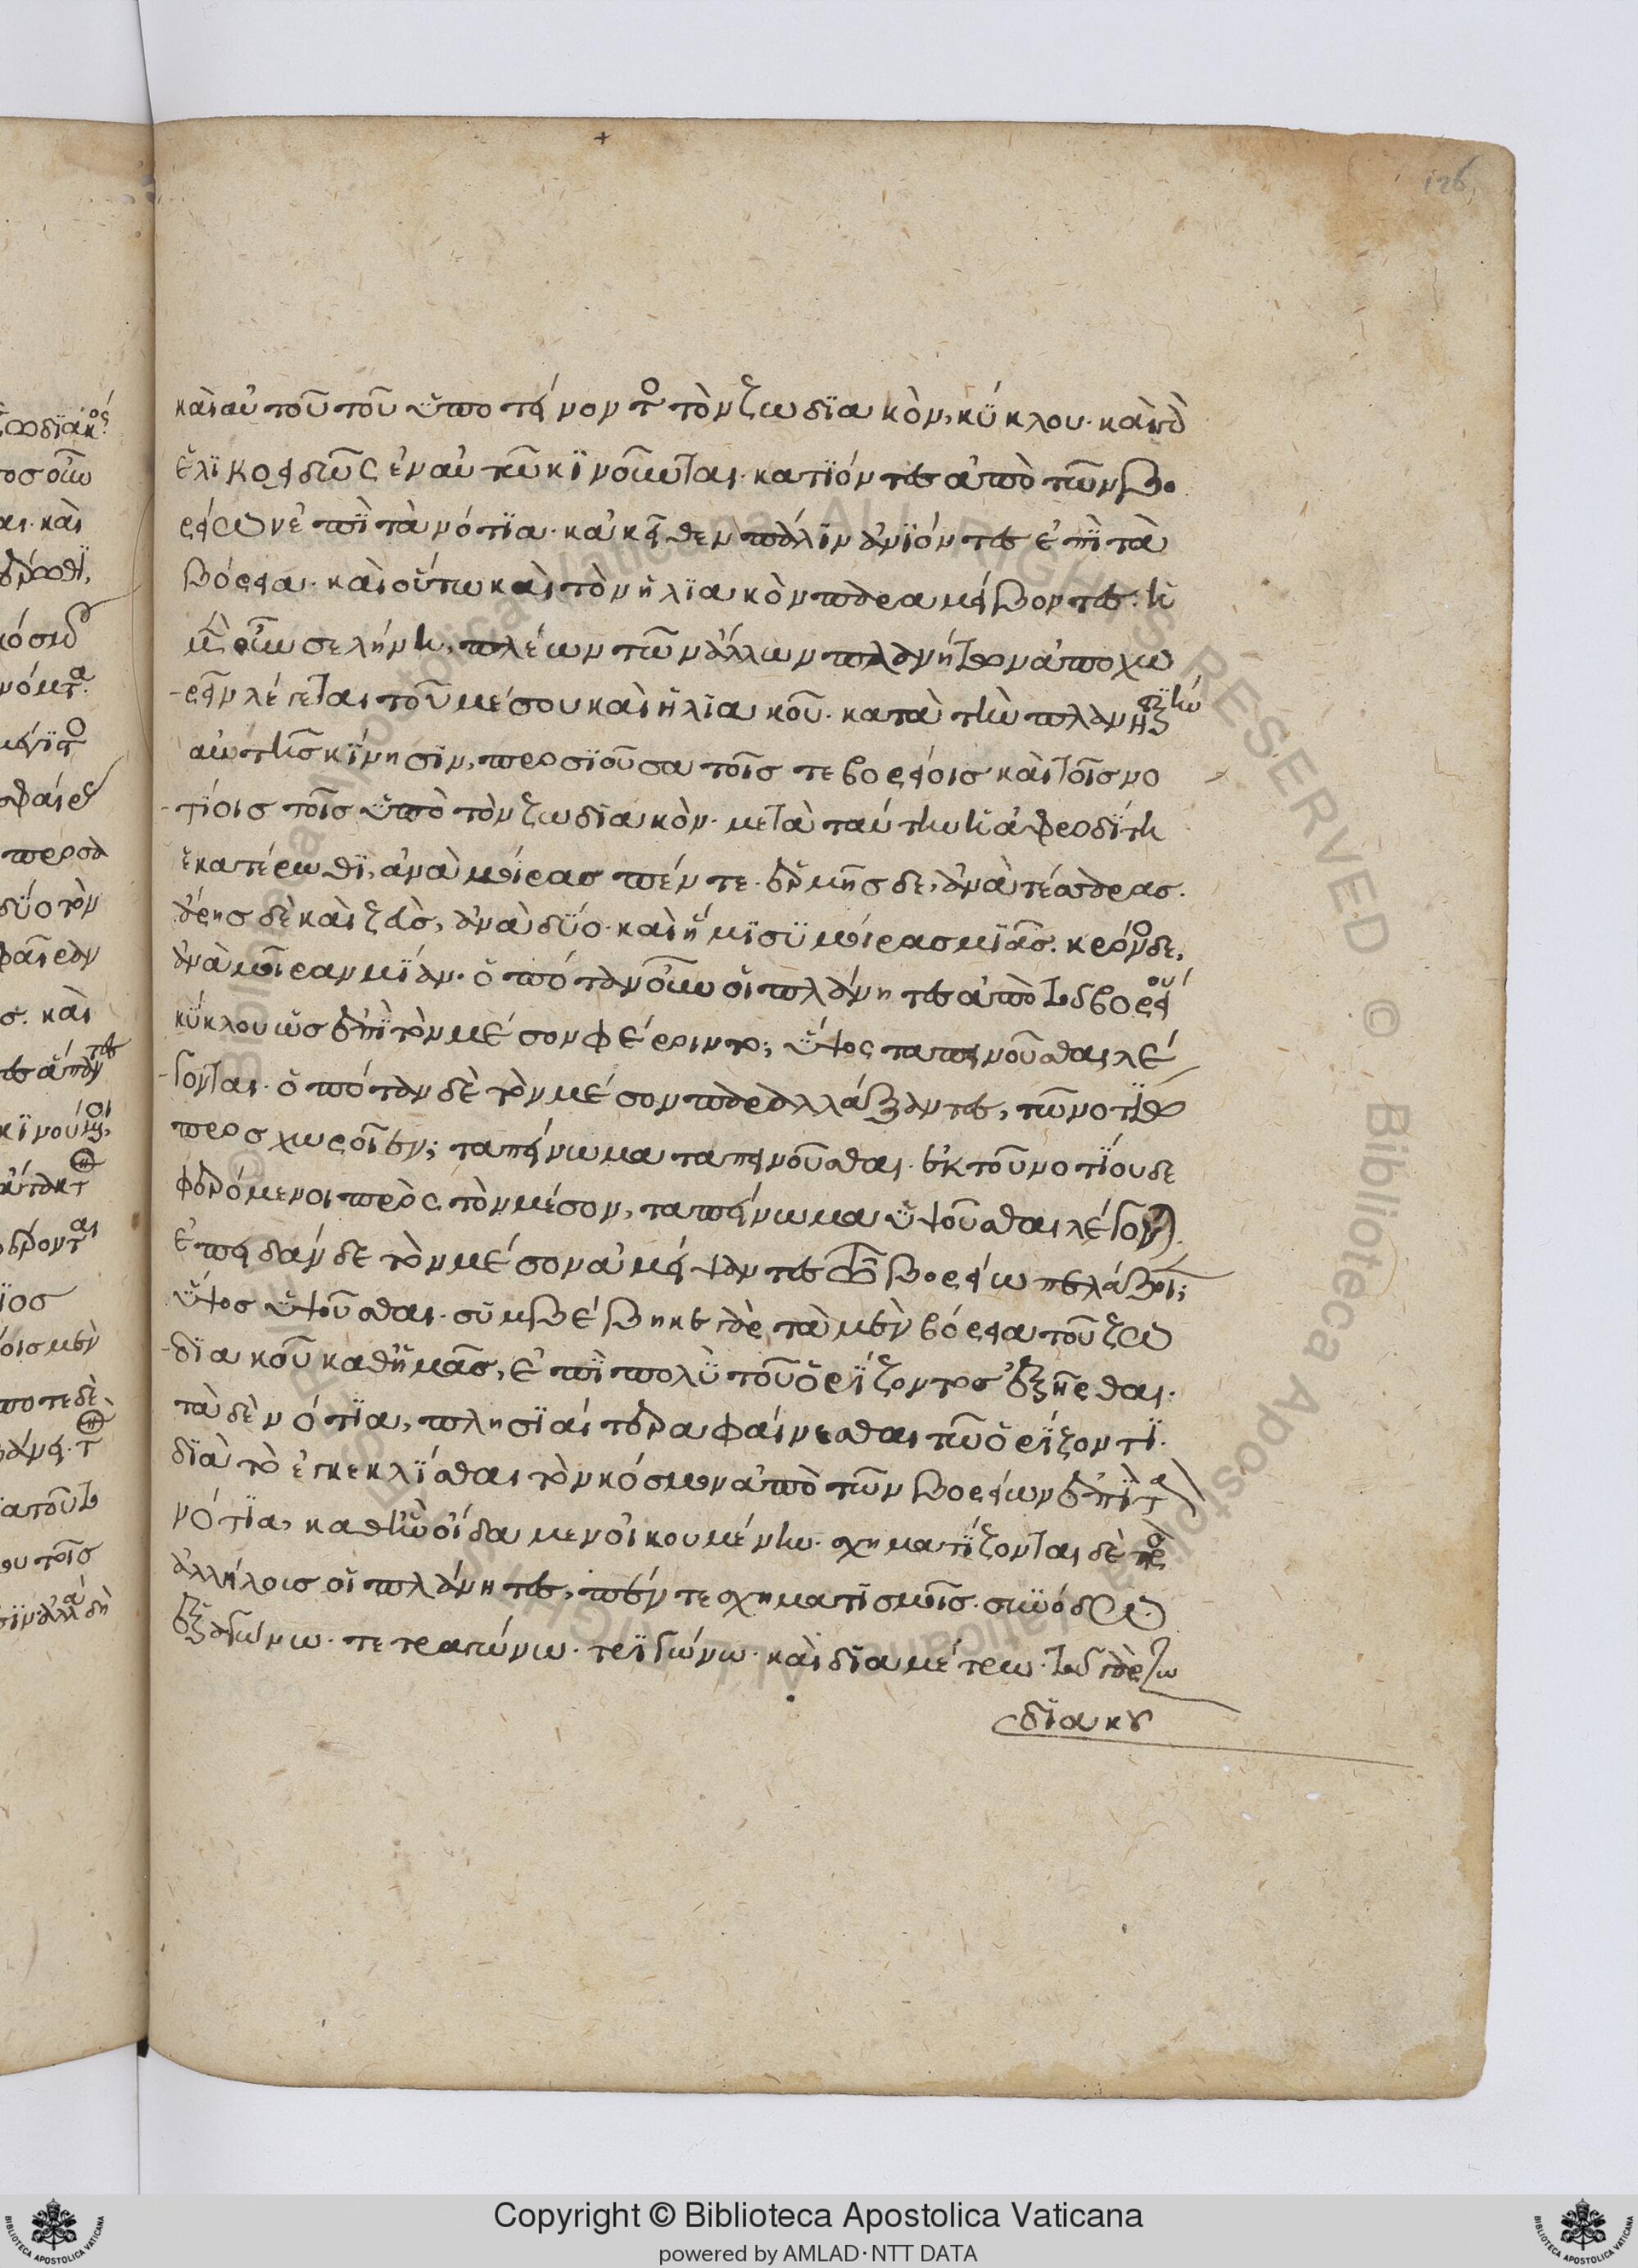 126
καὶ αὐτοῦ τοῦ ὑποτείνοντος τὸν ζωδιακὸν, κύκλου. καὶ
ἑλικοειδῶς ἐν αὐτῶ κινοῦνται. κατιόντες ἀπὸ τῶν βο
ρείων ἐπὶ τὰ νότια. κἀκεῖθεν πάλιν ἀνιόντες ἐπὶ τὰ
βόρεια. καὶ οὕτω καὶ τὸν ἡλιακὸν παραμείβοντες. ἡ
μὲν οὖν σελήνη, πλέων τῶν ἄλλων πλανήτων ἀποχω
ρεῖν λέγεται τοῦ μέσου καὶ ἡλιακοῦ. κατὰ τὴν πλανητικὴν
αὐτῆς κίνησιν, προσιοῦσα τοῖς τε βορείοις καὶ τοῖς νο
τίοις τοῖς ὑπὸ τὸν ζωδιακὸν. μετὰ ταύτην ἡ ἀφροδίτη
ἑκατέρωθι, ἀνὰ μοίρας πέντε. ἑρμῆς δε, ἀνὰ τέσσαρας.
ἄρης δὲ καὶ ζεὺς, ἀνὰ δύο. καὶ ἥμισυ μοίρας μιᾶς. κρόνος δε,
ἀνὰ μοῖραν μίαν. ὁπόταν οὖν οἱ πλάνητες ἀπὸ τοῦ βορείου
κύκλου ὡς ἐπὶ τὸν μέσον φέροιντο; ὕψος ταπεινοῦσθαι λέ
γονται. ὁπόταν δὲ τὸν μέσον παραλλάξαντες, τῶ νοτίω
προσχωροῖεν; ταπείνωμα ταπεινοῦσθαι. ἐκ τοῦ νοτίου δε
φερόμενοι πρὸς τὸν μέσον, ταπείνωμα ὑψοῦσθαι λέγονται.
ἐπειδὰν δε τὸν μέσον ἀμείψαντες τῶ βορείω πελάζοιεν;
ὕψος ὑψοῦσθαι. συμβέβηκε γὰρ τὰ μὲν βόρεια τοῦ ζω
διακοῦ καθ' ἡμᾶς, ἐπὶ πολὺ τοῦ ὁρίζοντος ἐξῆρθαι.
τὰ δὲ νότια, πλησιαίτερα φαίνεσθαι τῶ ὁρίζοντι.
διὰ τὸ ἐγκεκλίσθαι τὸν κόσμον ἀπὸ τῶν βορείων ἐπὶ τὰ
νότια, καθ' ἣν οἴδαμεν οἰκουμένην. σχηματίζονται δὲ πρὸς
ἀλλήλοις οἱ πλάνητες, πέντε σχηματισμοῖς. συνόδω.
ἑξαγώνω. τετραγώνω. τριγώνω. καὶ διαμέτρω. τοῦ γὰρ ζω
διακοῦ
Copyright © Biblioteca Apostolica Vaticana
powered by AMLAD·NTT DATA